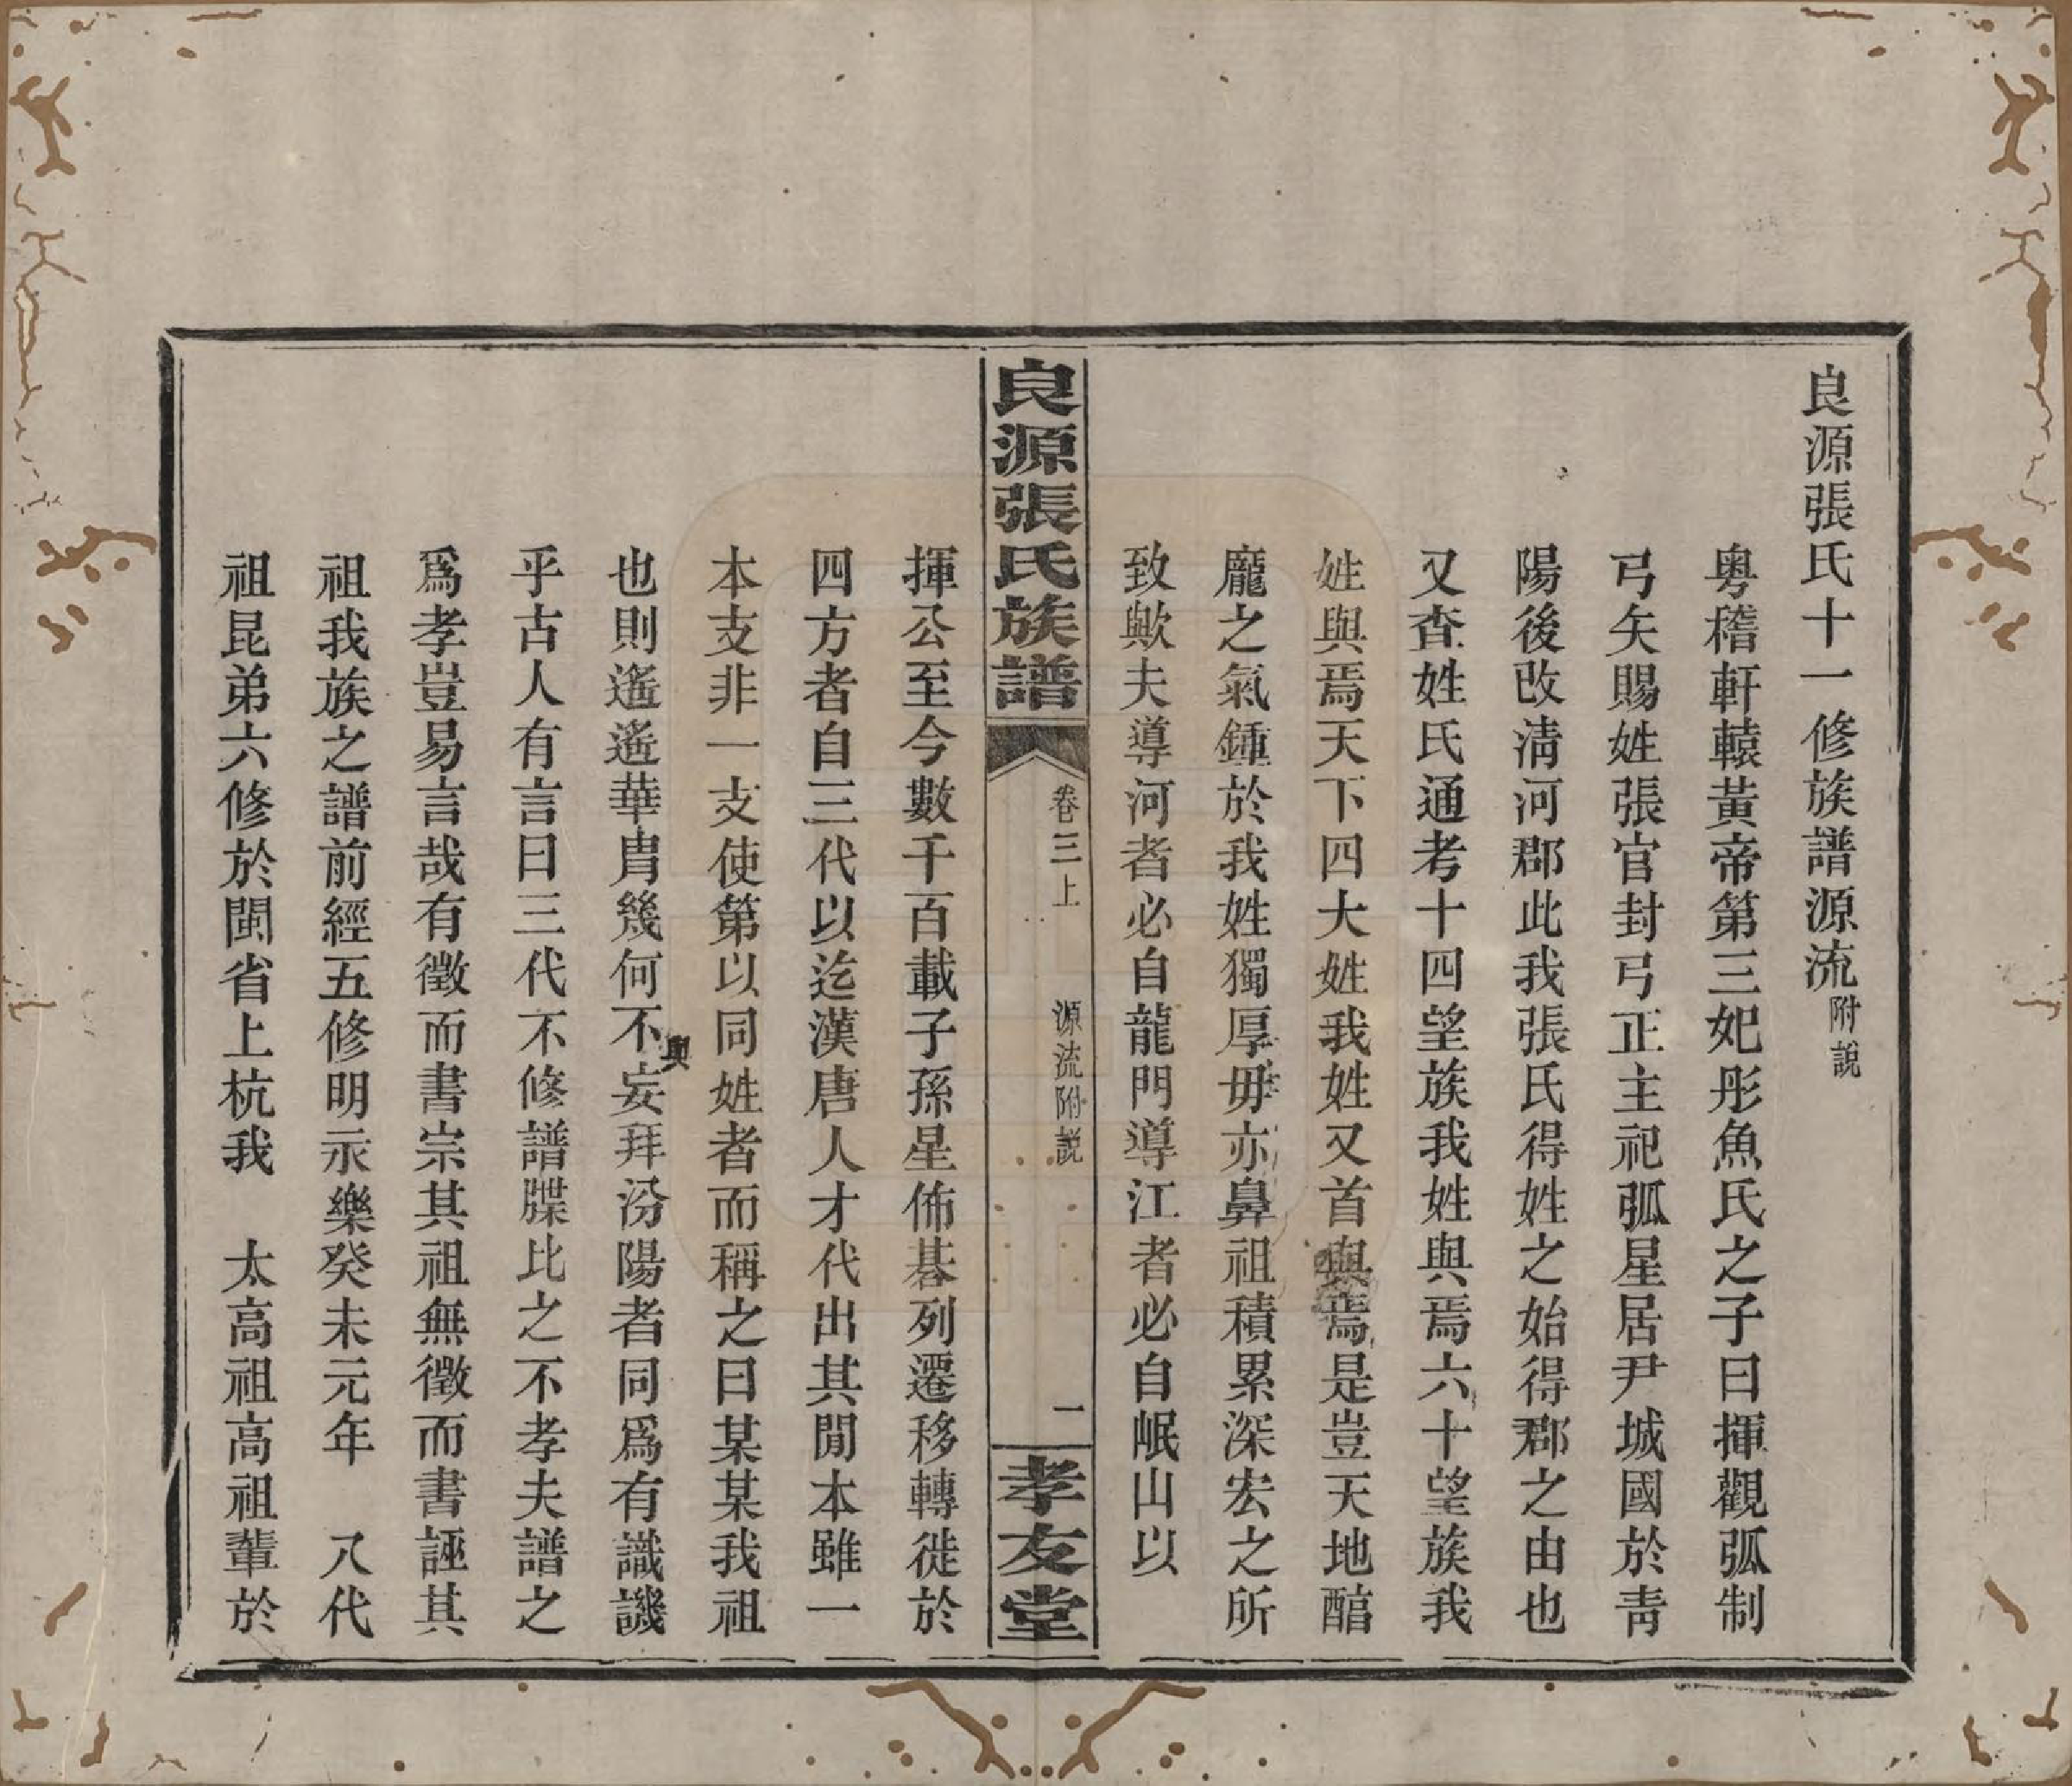 良源張氏十一修族譜源流附說
粵稽軒轅黃帝第三妃彤魚氏之子曰揮觀弧制
弓矢賜姓張官封弓正主祀弧星居尹城國於靑
陽後改淸河郡此我張氏得姓之始得郡之由也
又查姓氏通考十四望族我姓與焉六十望族我
姓與焉天下四大姓我姓又首與焉是豈天地醕
龐之氣鍾於我姓獨厚毋亦鼻祖積累深宏之所
致歟夫導河者必自龍門導江者必自岷山以
良源張氏族譜
卷三上
源流附説
一
孝友堂
揮公至今數千百載子孫星佈碁列遷移轉徙於
四方者自三代以迄漢唐人才代出其閒本雖一
本支非一支使第以同姓者而稱之曰某某我祖
也則遙遙華胄幾何不與妄拜汾陽者同爲有識譏
乎古人有言曰三代不修譜牒比之不孝夫譜之
爲孝豈易言哉有徵而書宗其祖無徵而書誣其
祖我族之譜前經五修明永樂癸未元年 八代
祖昆弟六修於閩省上杭我 太高祖高祖輩於